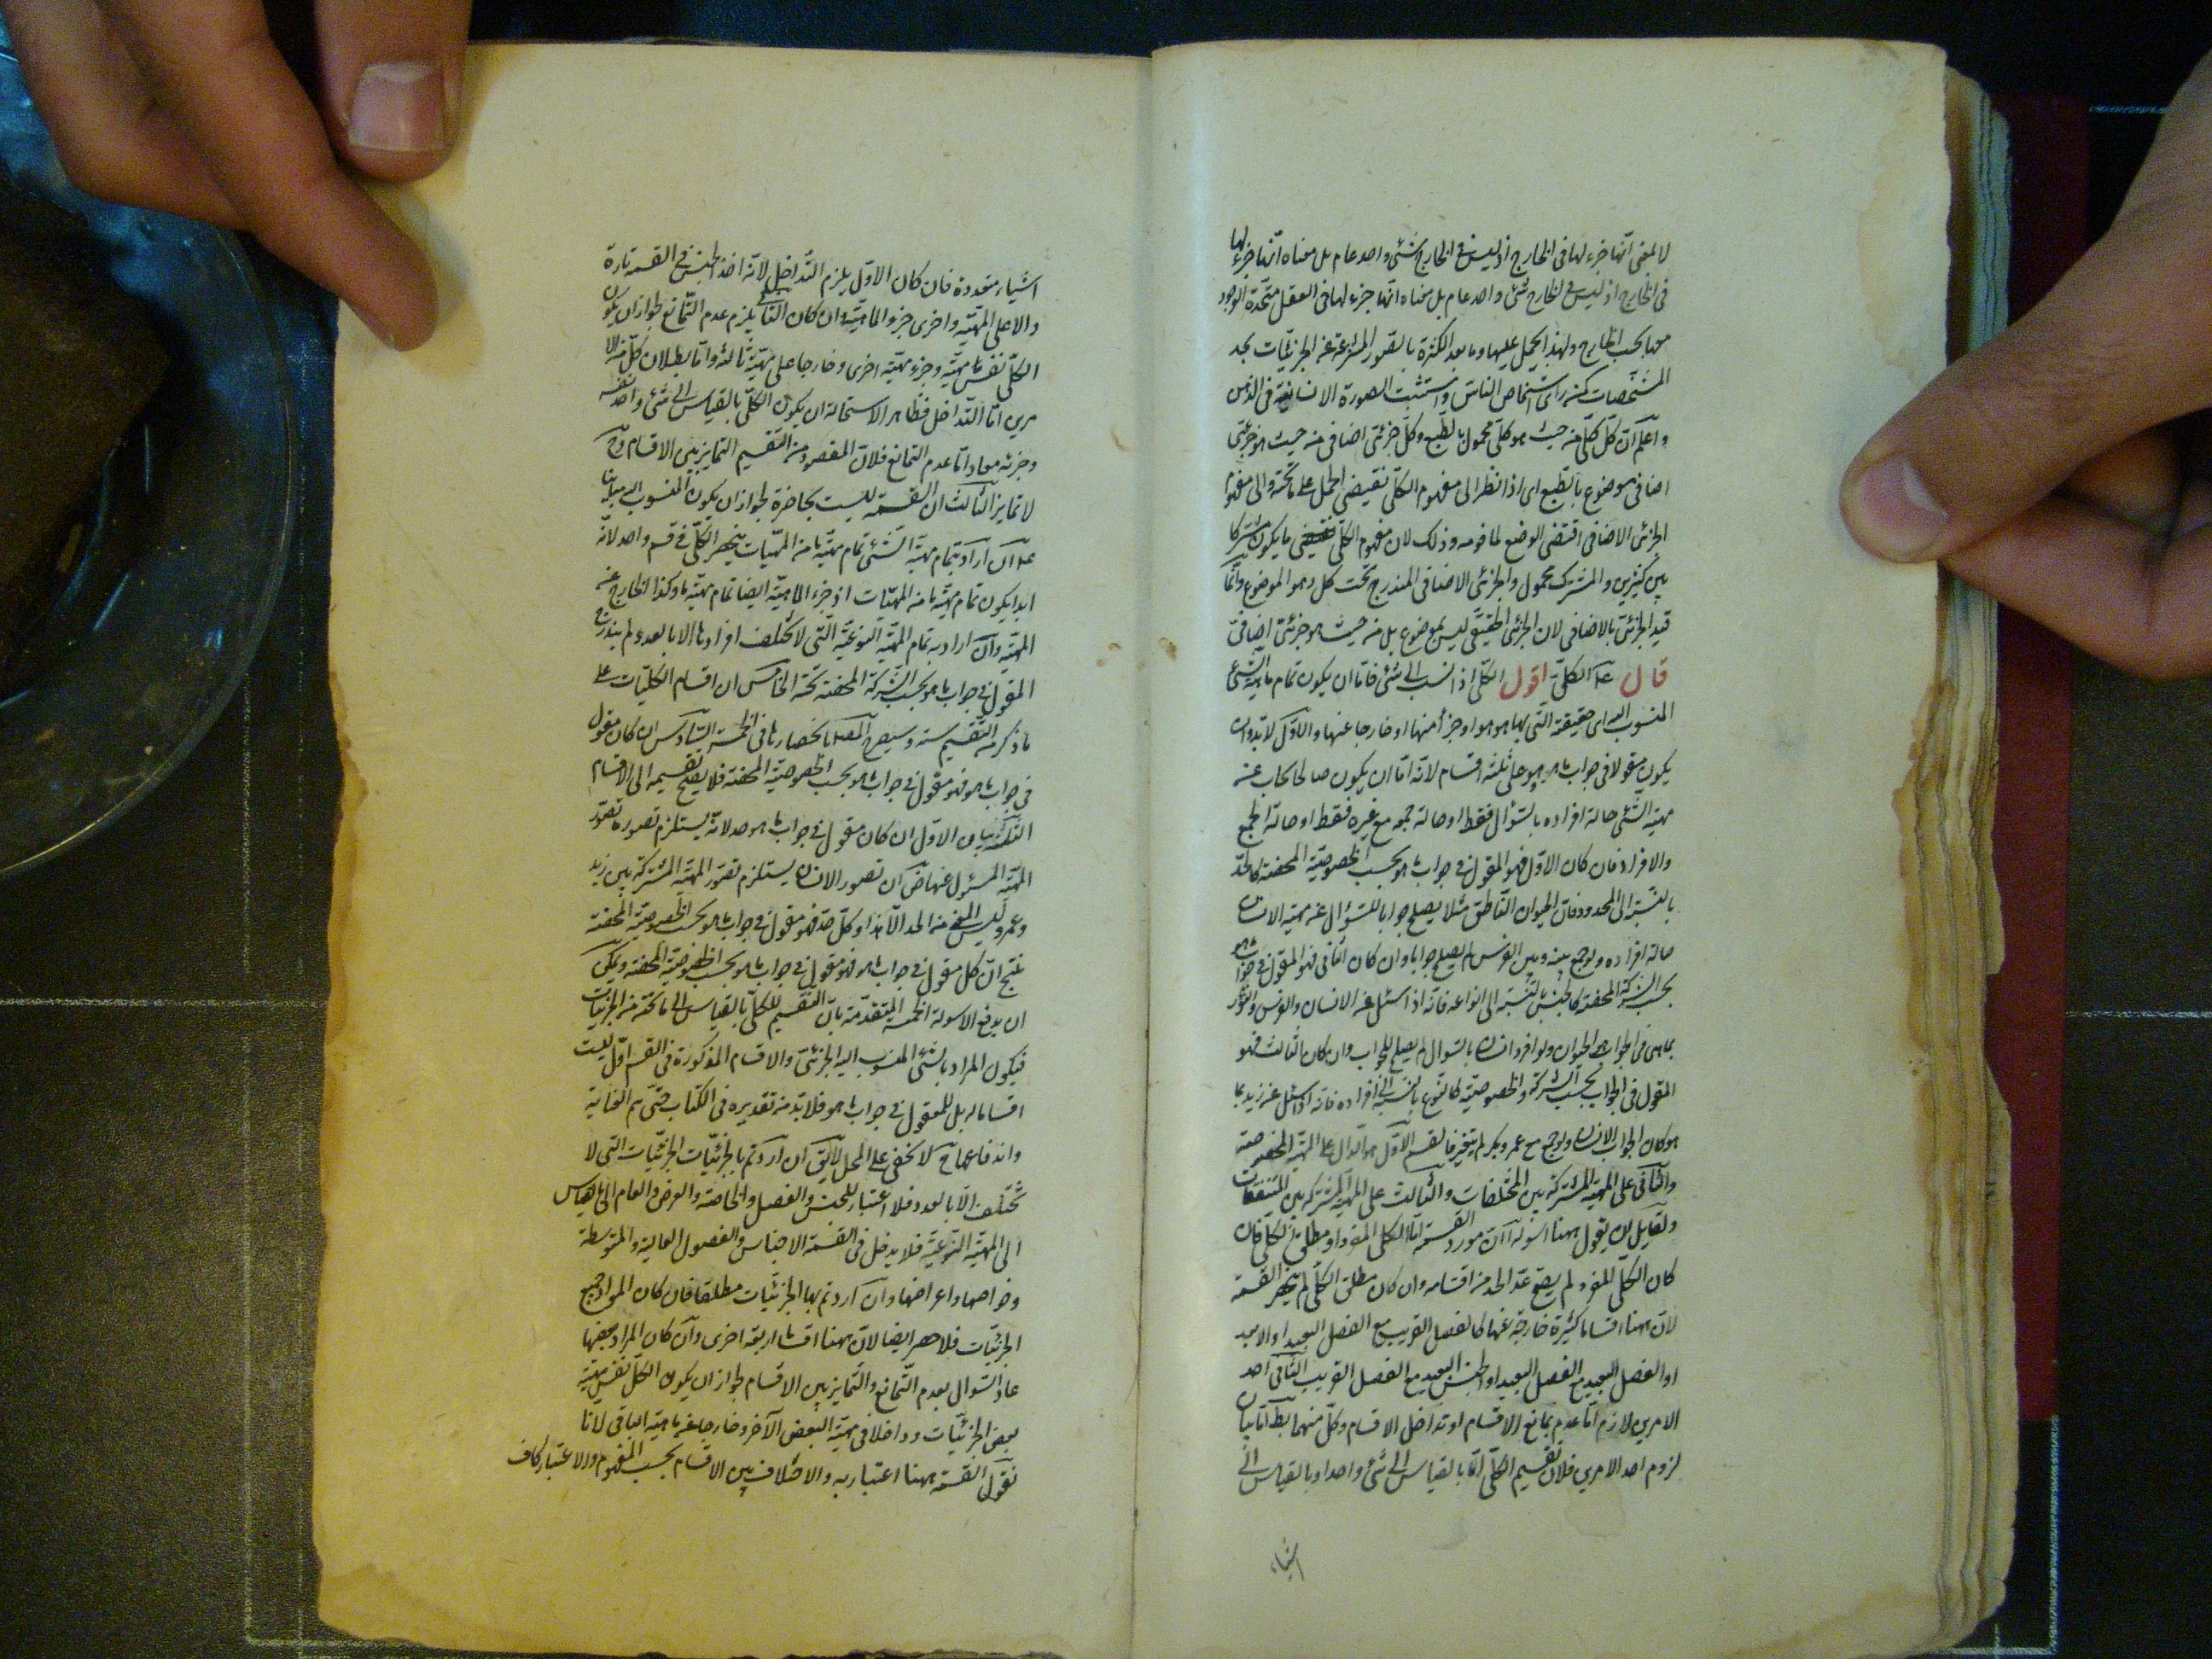 لا بمعنى انها جزء لها فى الخارج اذ ليس فى الخارج شئ واحد عام بل معناه انها جزء لها
فى الخارج اذ ليس فى الخارج شئ واحد عام بل معناه انها جزء لها فى العقل متحدة الوجود
معها بحسب الخارج ولهذا يحمل عليها وما بعد الكثرة بالصور المنتزعة عن الجزئيات بحد
المشخصات كمن رأى اشخاص الناس واستثبت الصورة الانسانية فى الذهن
واعلم ان كل كلى من حيث هو كلى محمول بالطبع وكل جزئى اضافى من حيث هو جزئى
اضافى موضوع بالطبع اى اذا نظر الى مفهوم الكلى تقيضى الحمل على ما تحته والى مفهوم
الجزئى الاضافى اقتضى الوضع لما فوقه وذلك لان مفهوم الكلى ما يكون مشتركا
بين كثيرين والمشترك محمول والجزئى الاضافى المندرج تحت كل وهو الموضوع وانما
قيد الجزئى بالاضافى لان الجزئى الحقيقى ليس بموضوع بل من حيث هو جزئى اضافى
قال الكلى اقول الكلى اذا نسب الى شئ فاما ان يكون تمام ماهية الشئ
المنسوب اليه اى حقيقته التى بها هو هو او جزأ منها او خارجا عنها والاول لابد وان
يكون مقولا فى جواب ما هو وهو على ثلثة اقسام لانه اما ان يكون صالحا لان يجاب عن
مهية الشئ حالة افراده بالسؤال فقط او حالة جمعه مع غيره فقط او حالة الجمع
والافراد فان كان الاول فهو المقول فى جواب ما هو بحسب الخصوصية المحضة كالحد
بالنسبة الى المحدود فان الحيوان الناطق مثلا يصلح جوابا للسؤال عن مهية الانسان
حالة افراده ولو جمع بينه وبين الفرس لم يصلح جوابا وان كان الثانى فهو المقول فى جواب ما هو
بحسب الشركة المحضة كالجنس بالنسبة الى انواعه فانه اذا سئل عن الانسان والفرس والثور
بما هى فالجواب الحيوان ولو افرد انسان بالسؤال لم يصلح للجواب وان كان الثالث فهو
المقول فى الجواب بحسب الشركة والخصوصية كالنوع بالنسبة الى افراده فانه اذا سئل عن زيد بما
هو كان الجواب الانسان ولو جمع مع عمرو وبكر لم يتغير فالقسم الاول هو الدال على المهية المختصة
والثانى على المهية المشتركة بين المختلفات والثالث على المهية المشتركة بين المتفقات
ولقايل ان يقول ههنا اسولة آ ان مورد القسمة اما الكلى المفرد او مطلق الكلى فان
كان الكلى المفرد لم يصح عد الحد من اقسامه وان كان مطلق الكلى لم ينحصر القسمة
لان ههنا اقساما كثيرة خارجة عنها كالفصل القريب مع الفصل البعيد او الابعد
او الفصل البعيد مع الفصل البعيد او الجنس البعيد مع الفصل القريب الثانى احد
الامرين لازم اما عدم تمانع الاقسام او تداخل الاقسام وكل منهما بط اما بيان
لزوم احد الامرين فلان تقسيم الكلى اما بالقياس الى شئ واحد او بالقياس الى
اشياء
اشياء متعددة فان كان الاول يلزم التداخل لانه اخذ الجنس فى القسمة تارة
والا على المهية واخرى جزء الماهية وان كان الثانى يلزم عدم التمانع لجواز ان يكون
الكلى نفس مهية وجزء مهية اخرى وخارجا على مهية ثالثة واما بطلان كل من الا
مرين اما التداخل فظاهر لاستحالة ان يكون الكلى بالقياس الى شئ واحد نفسه
وجزئه معا واما عدم التمانع فلان المقصود من التقسيم التمايز بين الاقسام وح
لا تمايز الثالث ان القسمة ليست بحاضرة لجواز ان يكون المنسوب اليه مباينا
ان اراد بتمام مهية الشئ تمام مهية ما من المهيات ينحصر الكلى فى قسم واحد لانه
ابدا يكون تمام مهية ما من المهيات اذ جزء الماهية ايضا تمام مهية ما وكذا الخارج عن
المهية وان اراد به تمام المهية النوعية التى لا تختلف افرادها الا بالعدد لم يندرج
المقول فى جواب ما هو بحسب الشركة المحضة تحته الخامس ان اقسام الكليات على
ما ذكر من التقسيم ستة وسيصرح المص بانحصارها فى الخمسة السادس ان كان مقول
فى جواب ما هو فهو مقول فى جواب ما هو بحسب الخصوصية المحضة فلا يصح تقسيمه الى الاقسام
الثلثة بيان الاول ان كان مقول فى جواب ما هو حد لانه يستلزم تصوره تصور
المهية المسئول عنها ض ان تصور الانسان يستلزم تصور المهية المشتركة بين زيد
وعمرو وليس المعنى من الحد الا هذا وكل حد فهو مقول فى جواب ما هو بحسب الخصوصية المحضة
ينتج ان كل مقول فى جواب ما هو فهو مقول فى جواب ما هو بحسب الخصوصية المحضة ويمكن
ان يدفع الاسولة الخمسة المتقدمة بان التقسيم للكلى بالقياس الى ما تحته من الجزئيات
فيكون المراد بالشئ المنسوب اليه الجزئى والاقسام المذكورة فى القسم الاول ليست
اقساما له بل للمقول فى جواب ما هو فلا بد من تقديره فى الكتاب حتى يتم العناية
واندفاعها ح لا يخفى على المحصل لا يق ان اردتم بالجزئيات الجزئيات التى لا
تختلف الا بالعدد فلا اعتبار للجنس والفصل والخاصة والعرض العام الى بالقياس
الى المهية النوعية فلا يدخل فى القسمة الاجناس والفصول العالية والمتوسطة
وخواصها واعراضها وان اردتم بها الجزئيات مطلقا فان كان المراد جميع
الجزئيات فلا حصر ايضا لان ههنا اقساما اربعة اخرى وان كان المراد بعضها
عاد السؤال بعدم التمانع والتمايز بين الاقسام لجواز ان يكون الكلى نفس مهية
بعض الجزئيات وداخلا فى مهية البعض الآخر وخارجا عن ماهية الباقى لانا
نقول القسمة ههنا اعتبارية والاختلاف بين الاقسام بحسب المفهوم والاعتبار كاف